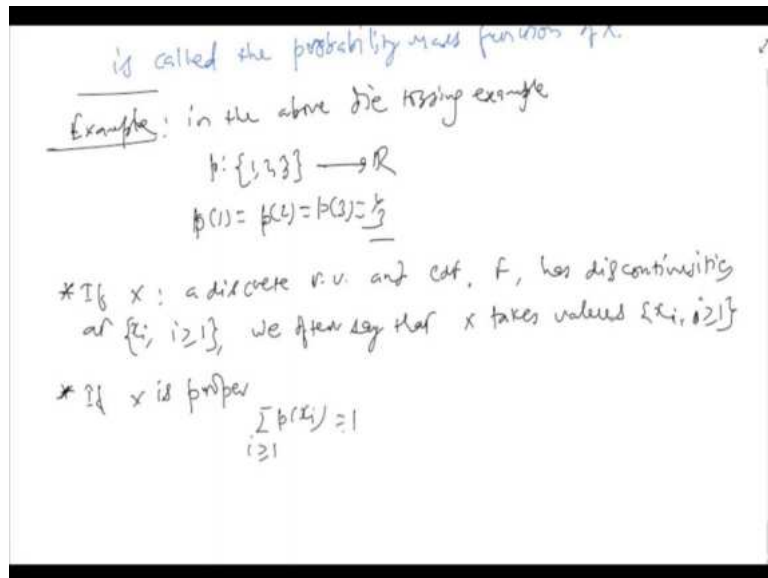 is called the probability mass function of X.
Example: in the above die tossing example
p: {1,2,3} → R
p(1) = p(2) = p(3) = 1/3
* If X : a discrete r.v. and cdf, F, has discontinuities
at {xi, i≥1}, we often say that X takes values {xi, i≥1}
* If X is proper
Σ p(xi) = 1
i≥1